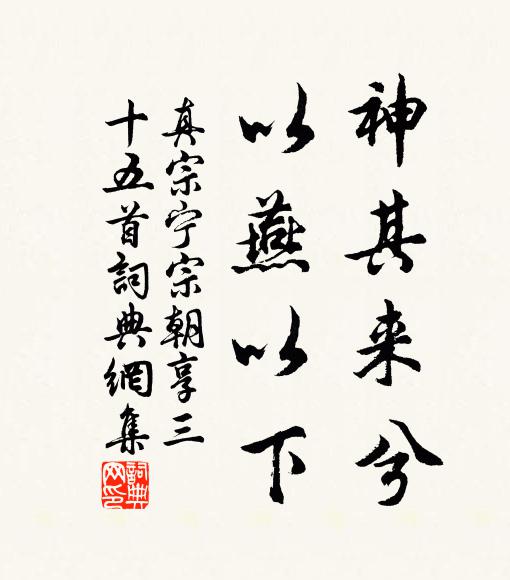 神其来兮
以燕以下
真宗宁宗朝享三
十五首詞典網集
詞典网印